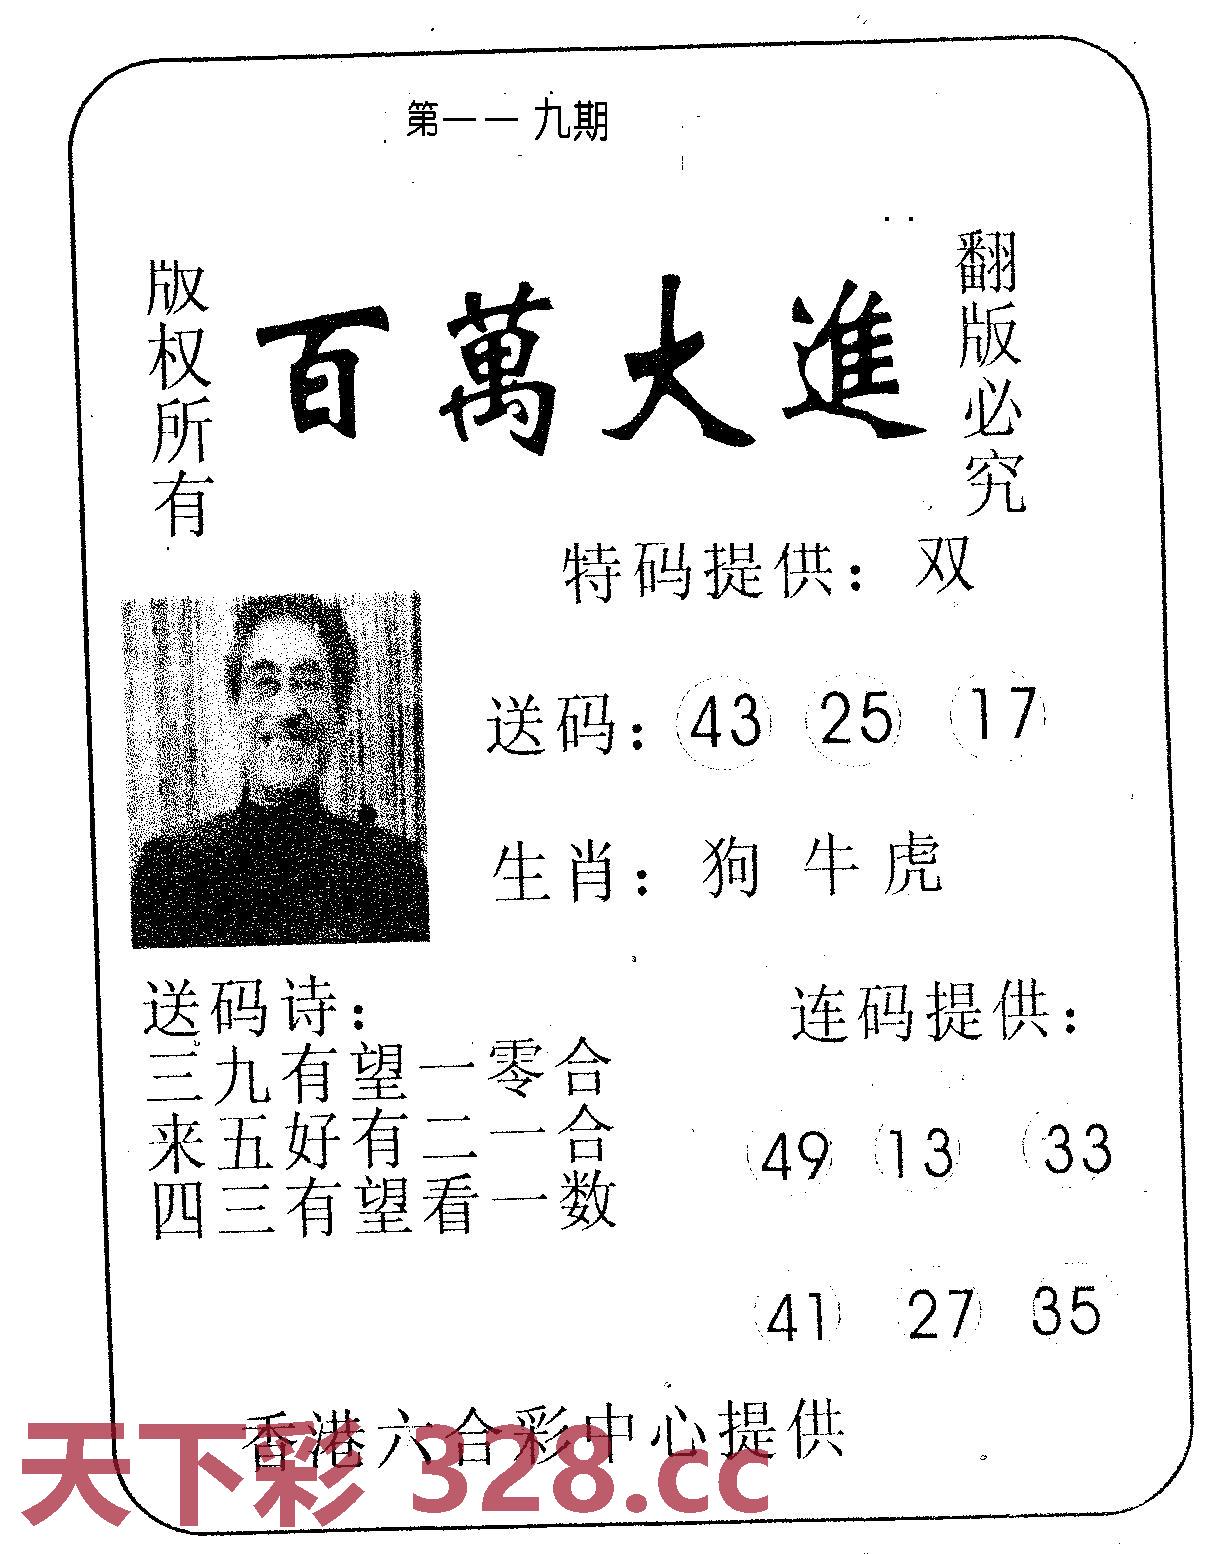 第一一九期
版权所有
百萬大進
翻版必究
特码提供：双
送码：43 25 17
生肖：狗 牛 虎
送码诗：
三九有望一零合
来五好有二一合
四三有望看一数
连码提供：
49 13 33
41 27 35
香港六合彩中心提供
天下彩 328.cc